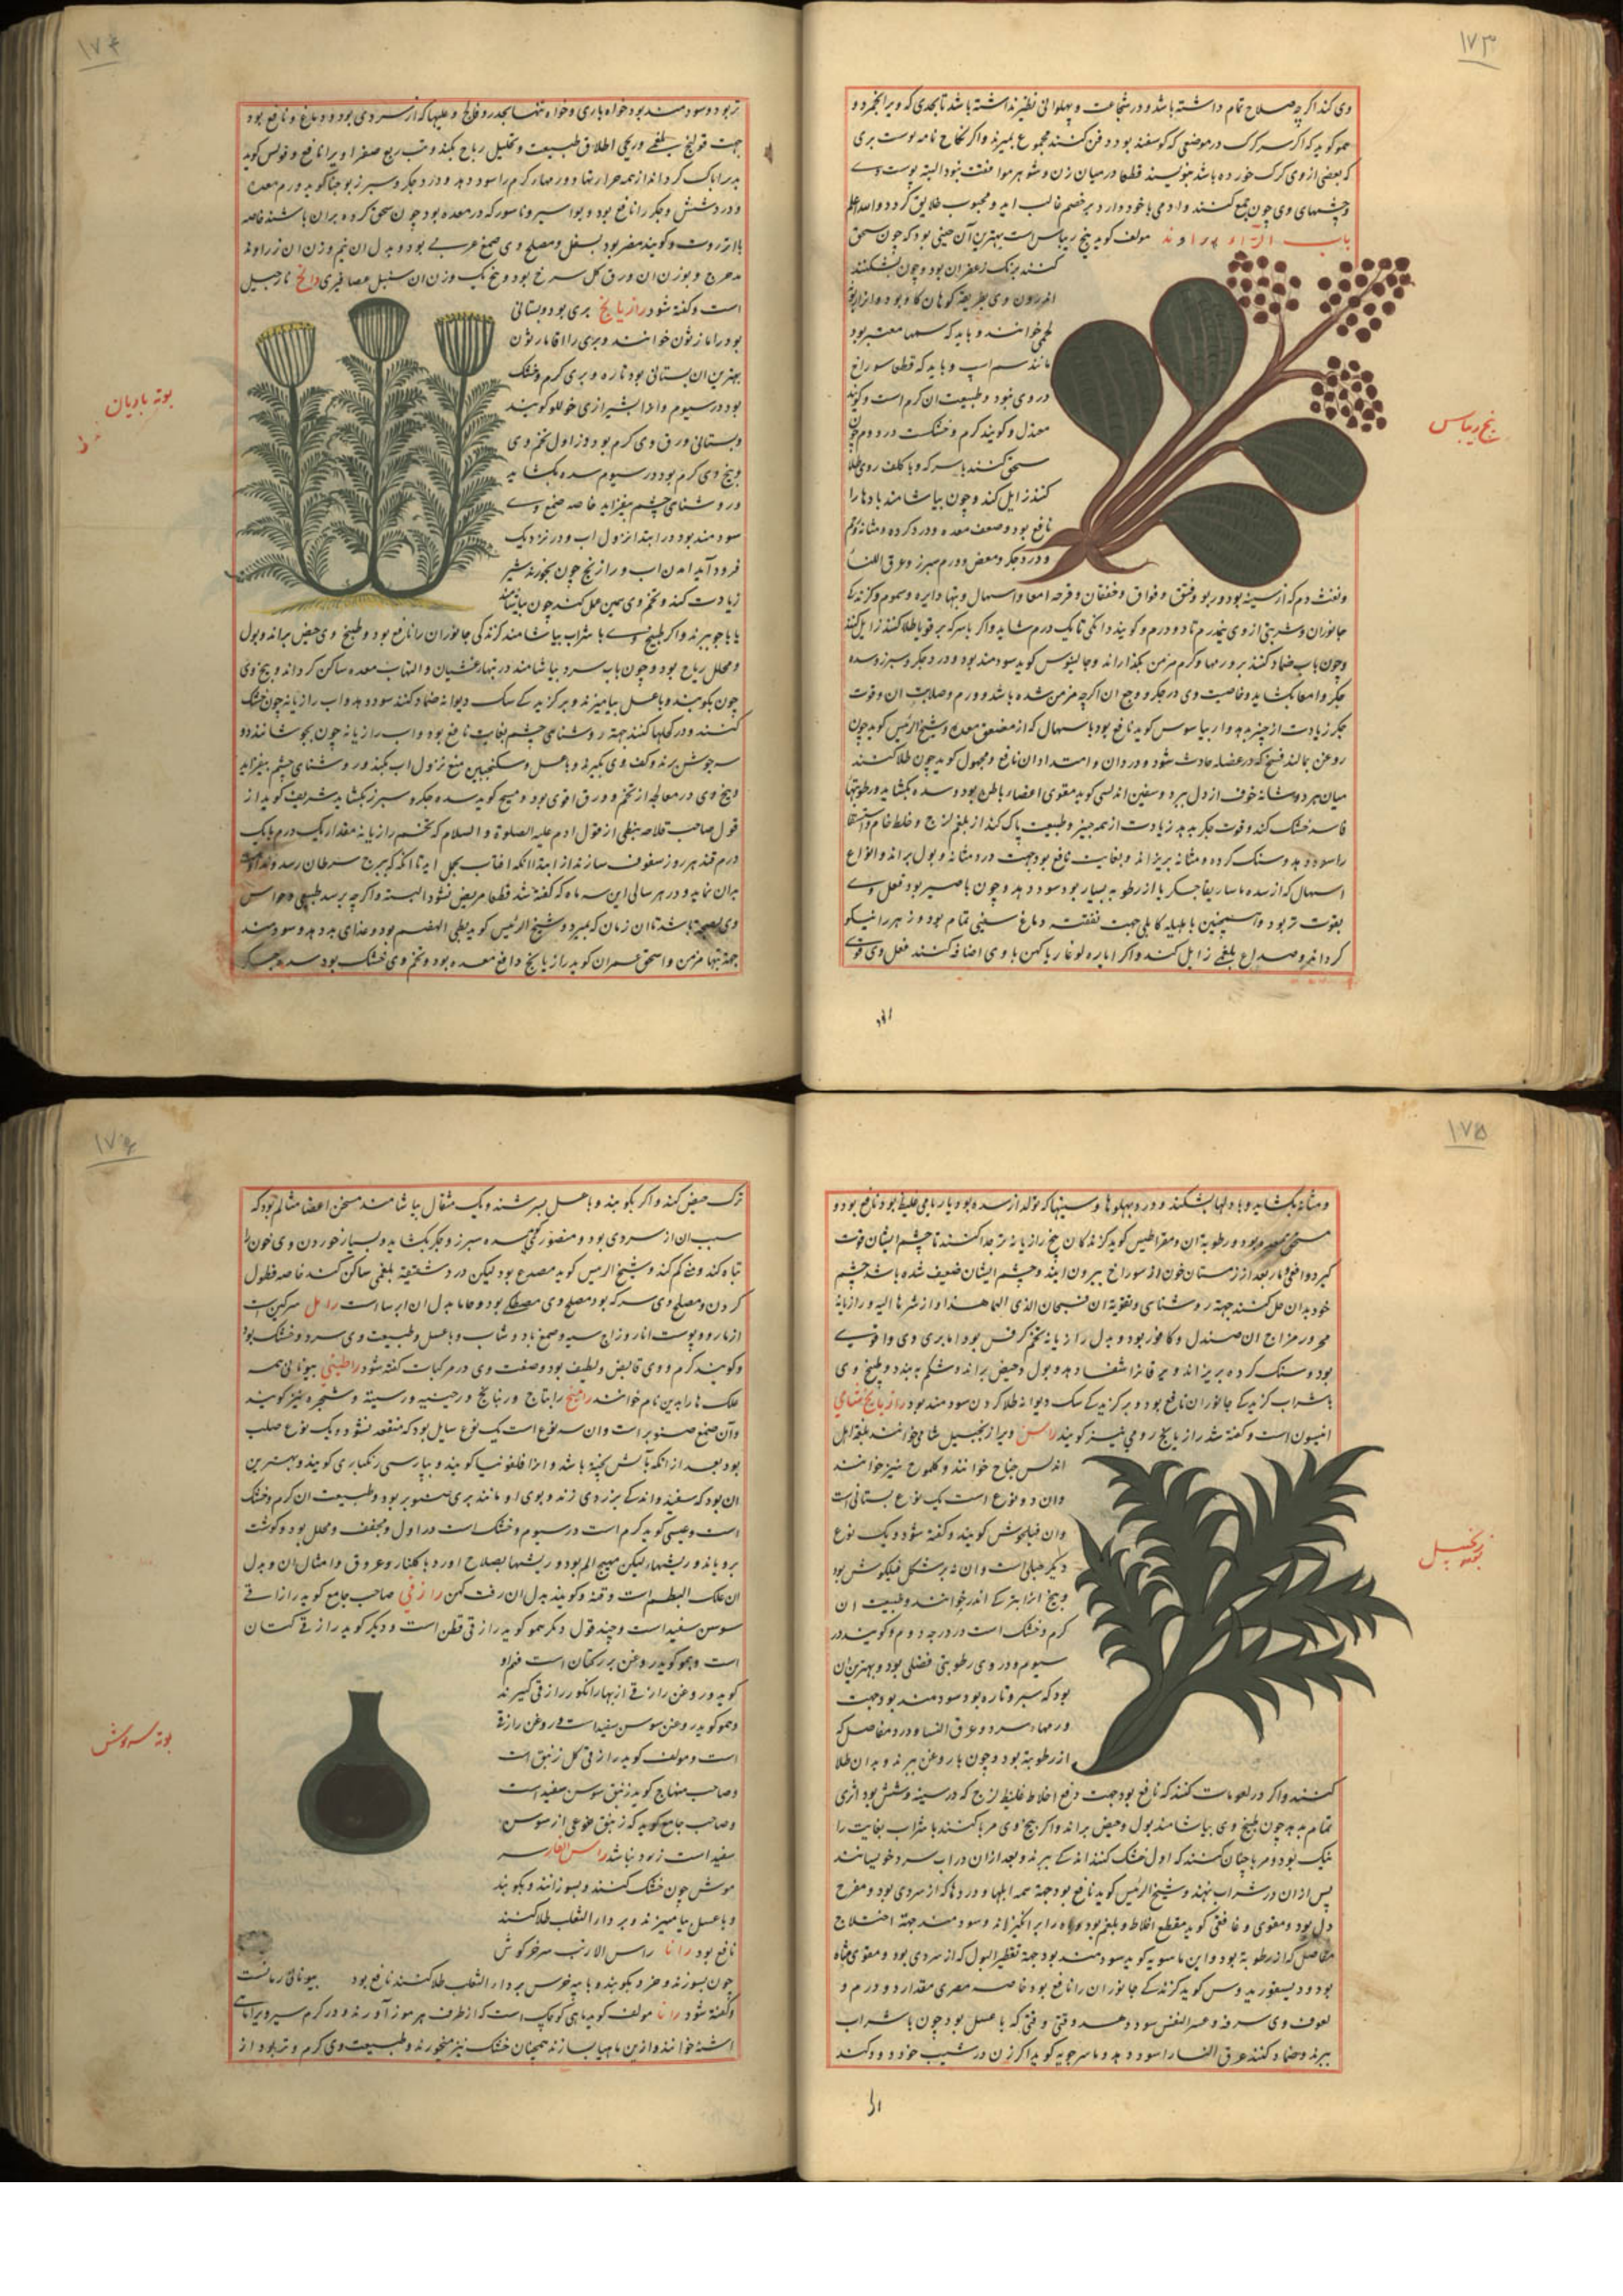 ۱۷۳
وی کند اگر چه صلاح تمام داشته باشد و در شجاعت و پهلوانی نظیر نداشته باشد تا بحدی که ویرا
همو گوید که اگر سر گرگ در موضعی که گوسفند بود دفن کنند مجموع بمیرند و اگر نکاح نامه بر پوست بری
که بعضی از وی گرگ خورده باشد بنویسند قطعا در میان زن و شوهر موافقت نبود البته پوست وی
و چشمهای وی چون جمع کنند و آدمی با خود دارد بر خصم غالب اید و محبوب خلایق گردد والله اعلم
باب الرا راوند مولف گوید بیخ ریباس است بهترین آن چینی بود که چون سحق
کنند برنگ زعفران بود و چون بشکنند
اندرون وی بطریقه کوهان گاو بود و انرا ریوند
لحمی خوانند و باید که سمها معتبر بود
مانند سم اسپ و باید که قطعا سوراخ
در وی نبود و طبیعت ان گرم است و گویند
معتدل و گویند گرم و خشکست در دوم چون
سحق کنند با سرکه و با کلف روی طلا
کنند زایل کند و چون بیاشامند بادها را
نافع بود و ضعف معده و درد گرده و مثانه و رحم
و درد جگر و مغص و ورم سپرز و عرق النسا
و نفث دم که از سینه بود و ربو و فتق و فواق و خفقان و قرحه امعا و اسهال و تبها دایره و سموم و گزندگی
جانوران و شربتی از وی نیم درم تا دو درم و گویند دانگی تا یک درم شاید و اگر با سرکه بر قوبا طلا کنند زایل کند
و چون باب ضماد کنند بر ورمها گرم مزمن بگذاراند و جالینوس گوید سودمند بود درد جگر و سپرز و سده
جگر و امعا بگشاید و خاصیت وی در جگر و وجع ان اگر چه مزمن شده باشد و ورم و صلابت ان و قوت
جگر زیادت از چیز بدهد و اریباسوس گوید نافع بود با سهال که از ضعف معده و شیخ الرئیس گوید چون
روغن بمالند فسخ که در عضله حادث شود و در دان و امتداد ان نافع و مجهول گوید چون طلا کنند
میان هر دو شانه خوف از دل ببرد و سفین اندلسی گوید مقوی اعضا باطن بود و سده بگشاید و رطوبتها
فاسد خشک کند و قوت جگر بدهد زیادت از همه چیز و طبیعت پاک کند از بلغم لزج و خلط خام و استسقا
را سود دهد و سنگ گرده و مثانه بریزاند و بغایت نافع بود جهت درد مثانه و بول براند و انواع
اسهال که از سده ماساریقا جگر یا از رطوبه بسیار بود سود دهد و چون با صبر بود فعل وی
بقوت تر بود و همچنین با هلیله کابلی جهت تنقیه دماغ سببی تمام بود و زهر را نیکو
گرداند و صداع بلغمی زایل کند و اگر ایاره لوغاریا کهن با وی اضافه کنند فعل وی قوی
بیخ ریباس
۱۷۴
تر بود و سودمند بود خواه با ری و خواه تنها بخدر و فالج و علتها که از سردی بود و دماغ را نافع بود
جهت قولنج بلغمی و ریحی اطلاق طبیعت و تحلیل ریاح بکند و تب ربع صفراوی را نافع و فولس گوید
و درد شش و جگر را نافع بود و بواسیر و ناسور که در معده بود چون سحق کرده بران باشند خاصه
با انزروت و گویند مضر بود بسفل و مصلح وی صمغ عربی بود و بدل ان نیم وزن ان زراوند
مدحرج و بوزن ان ورق گل سرخ بود و پنج یک وزن ان سنبل عصافیری رانج نارجیل
است و گفته شود رازیانج بری بود و بستانی
بود را مارثون خوانند و بری را اقمارثون
بهترین ان بستانی بود تازه و بری گرم و خشک
بود در سیوم و انرا بشیرازی خوللو گویند
و بستانی ورق وی گرم بود در اول تخم وی
و بیخ وی گرم بود در سیوم سده بگشاید
و روشنایی چشم بیفزاید خاصه صمغ وی
سودمند بود در ابتدا نزول اب و در نزدیک
فرود آید امدن اب و رازیانج چون بخورند شیر
زیادت کند و تخم وی همین عمل کند چون بیاشامند
یا با جو بپزند و اگر طبیخ وی با شراب بیاشامند گزندگی جانوران را نافع بود و طبیخ وی حیض براند و بول
و محلل ریاح بود و چون باب سرد بیاشامند در تبها غثیان و التهاب معده ساکن گرداند و بیخ وی
چون بکوبند و با عسل بیامیزند و بر گزیدگی سگ دیوانه ضماد کنند سود دهد و اب رازیانه چون خشک
کنند و در کحلها کنند جهته روشنایی چشم بغایت نافع بود و اب رازیانه چون بجوشانند دو
سه جوش بزند و کف وی بگیرند و با عسل و سکنجبین منع نزول اب بکند و روشنایی چشم بیفزاید
و بیخ وی در معالجه از تخم و ورق اقوی بود و مسیح گوید سده جگر و سپرز بگشاید شریف گوید از
قول صاحب فلاحه نبطی از قول ادم علیه الصلوة و السلام که تخم رازیانه مقدار یک درم با یک
درم قند هر روز سفوف سازند از ابتدا انکه افتاب بحمل اید تا انکه که ببرج سرطان رسد
بدان نماید و در هر سالی این سه ماه که گفته شد قطعا مریض نشود البته و اگر چه پیر سد طبیعی و حواس
وی بصحت باشد تا ان زمان که بمیرد و شیخ الرئیس گوید بطی الهضم بود و غذای بد دهد و سودمند
جهته تبها مزمن و اسحق عمران گوید رازیانج دافع معده بود و تخم وی خشک بود سده جگر
بوته بادیان
۱۷۵
و مثانه بگشاید و بادلها بشکند و درد پهلوها و سینها که تولد از سده بود یا ریاحی غلیظ بود نافع بود و
مسخن معده بود و رطوبة ان و مقراطیس گوید گزندگان بیخ رازیانه تر جدا کنند تا چشم ایشان قوت
گیرد و افعی و مار بعد از زمستان چون از سوراخ بیرون ایند و چشم ایشان ضعیف شده باشد چشم
خود بدان حل کنند جهته روشنایی و تقویة ان فسبحان الذی الهما هذا و از شرها الیه و رازیانه
محرور مزاج ان صندل و کافور بود و بدل رازیانه تخم کرفس بود اما بری وی را قوی
بود و سنگ گرده بریزاند و یرقانرا شفا دهد و بول و حیض براند و شکم ببندد و طبیخ وی
با شراب گزیدگی جانوران نافع بود و بر گزیدگی سگ دیوانه طلا کردن سودمند بود رازیانج شامی
انیسون است و گفته شد رازیانج رومی نیز گویند راسن ویرا زنجبیل شامی خوانند بلغه اهل
اندلس جناح خوانند و کلموح نیز خوانند
وان دو نوع است یک نوع بستانی است
وان فیلجوش گویند و گفته شود و یک نوع
دیگر جبلی است و ان نه بر شکل فیلگوش بود
و بیخ انرا بترکی اندز خوانند و طبیعت ان
گرم و خشک است در درجه دوم و گویند در
سیوم و در وی رطوبتی فضلی بود و بهترین ان
بود که سبز و تازه بود سودمند بود جهت
ورمهاء سرد و عرق النسا و درد مفاصل که
از رطوبة بود و چون با روغن بپزند و بدان طلا
کنند و اگر در لعوقات کنند که نافع بود جهت دفع اخلاط غلیظ لزج که در سینه و شش بود اثری
تمام بدهد چون طبیخ وی بیاشامند بول و حیض براند و اگر بیخ وی مربا کنند با شراب بغایت را
نیک بود و مربا چنان کنند که اول خشک کنند اندکی بپزند و بعد ازان در اب سرد خویسانند
پس از ان در شراب نهند و شیخ الرئیس گوید نافع بود جهة همه المها و دردها که از سردی بود و مفرح
دل بود و مقوی و غافقی گوید مقطع اخلاط و بلغم بود و باه را برانگیزاند و سودمند جهته اختلاج
مفاصل که از رطوبة بود و ابن ماسویه گوید سودمند بود جهة تقطیر البول که از سردی بود و مقوی مثانه
بود و دیسقوریدوس گوید گزندگی جانوران را نافع بود خاصه مصری مقدار دو درم و
لعوق وی سرفه و عسر النفس سود دهد وقتی وقتی که با عسل بود چون با شراب
بپزند و ضماد کنند عرق النسا را سود دهد و ماسرجویه گوید اگر زن در شیب خود دود کند
بوته زنجبیل
۱۷۶
ترک حیض کند و اگر بکوبند و با عسل بسرشند و یک مثقال بیاشامند مسخن اعضا متالم بود که
سبب ان از سردی بود و منصوری گوید سده سپرز و جگر بگشاید و بسیار خوردن وی خون را
تباه کند و منی کم کند و شیخ الرئیس گوید مصدع بود لیکن درد شقیقه بلغمی ساکن کند خاصه نطول
کردن و مصلح وی سرکه بود و مصلح وی مصطکی بود و حاما بدل ان ایرسا است رامک سرکین است
از مازو و پوست انار و زاج سیه و صمغ با دوشاب و با عسل و طبیعت وی سرد و خشک بود
و گویند گرم و وی قابض و لطیف بود و صنعت وی در مرکبات گفته شود راطینی بیونانی همه
علک ها را بدین نام خوانند راتینج راتیاج و رتیانج و رجینه و رسینه و شجره نیز گویند
وان صمغ صنوبر است وان سه نوع است یک نوع سایل بود که منعقد نشود و یک نوع صلب
بود بعد از انکه باتش پخته باشد و انرا قلفونیا گویند و بپارسی زنکباری گویند و بهترین
ان بود که سفید و اندکی بزردی زند و بوی او مانند بری صنوبر بود و طبیعت ان گرم و خشک
است و عیسی گوید گرم است در سیوم و خشک است در اول و مجفف و محلل بود و گوشت
برویاند و ریشهاء لیکن مهیج الم بود و ریشها بصلاح اورد با کلنار و عروق و امثال ان و بدل
ان علک البطم است و قنه و گویند بدل ان زفت کهن رازقی صاحب جامع گوید رازقی
سوسن سفید است و چند قول دیگر همو گوید رازقی قطن است و دیگر گوید رازقی کتان
است و همو گوید روغن بزر کتان است
گوید و روغن رازقی از بهار انگور رازقی گیرند
و همو گوید روغن سوسن سفید است و روغن رازقی
است و مولف گوید رازقی گل زنبق است
و صاحب منهاج گوید زنبق سوسن سفید است
و صاحب جامع گوید که زنبق نوعی از سوسن
سفید است زرد نباشد راس الفار سر
موش چون خشک کنند و بسوزانند و بکوبند
و با عسل بیامیزند و بر داء الثعلب طلا کنند
نافع بود رانا راس الارنب سر خرگوش
چون بسوزند و خرد بکوبند و با پیه خرس بر داء الثعلب طلا کنند نافع بود بیونانی رمانست
و گفته شود رانا مولف گوید ماهی کوچک است که از طرف هرموز آورند و در گرمسیر ویرا ماهی
اشنه خوانند و ازین ماهیابه سازند همچنان خشک نیز میخورند و طبیعت وی گرم و تر بود از
بوته سروش